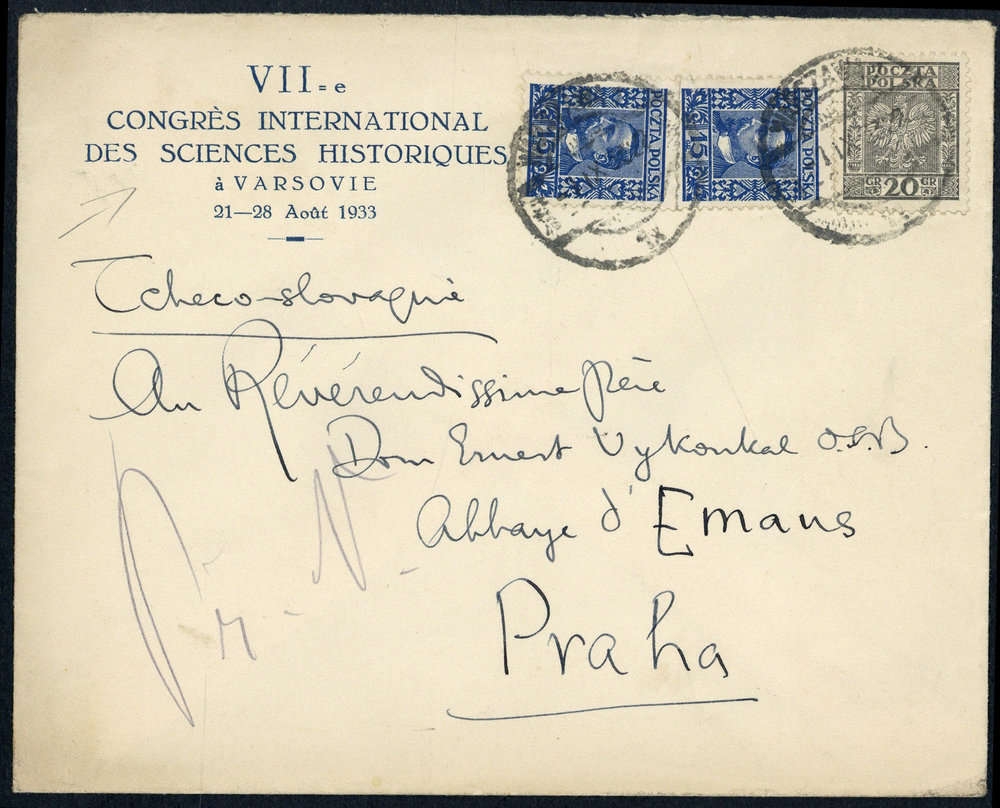 VII=e
CONGRÈS INTERNATIONAL
DES SCIENCES HISTORIQUES
à VARSOVIE
21—28 Août 1933
POCZTA POLSKA
15
POCZTA POLSKA
15
POCZTA
POLSKA
GR 20 GR
Tcheco-slovaquie
Au Révérendissime Père
Dom Ernest Vykoukal O.S.B.
Abbaye d'Emaus
Praha